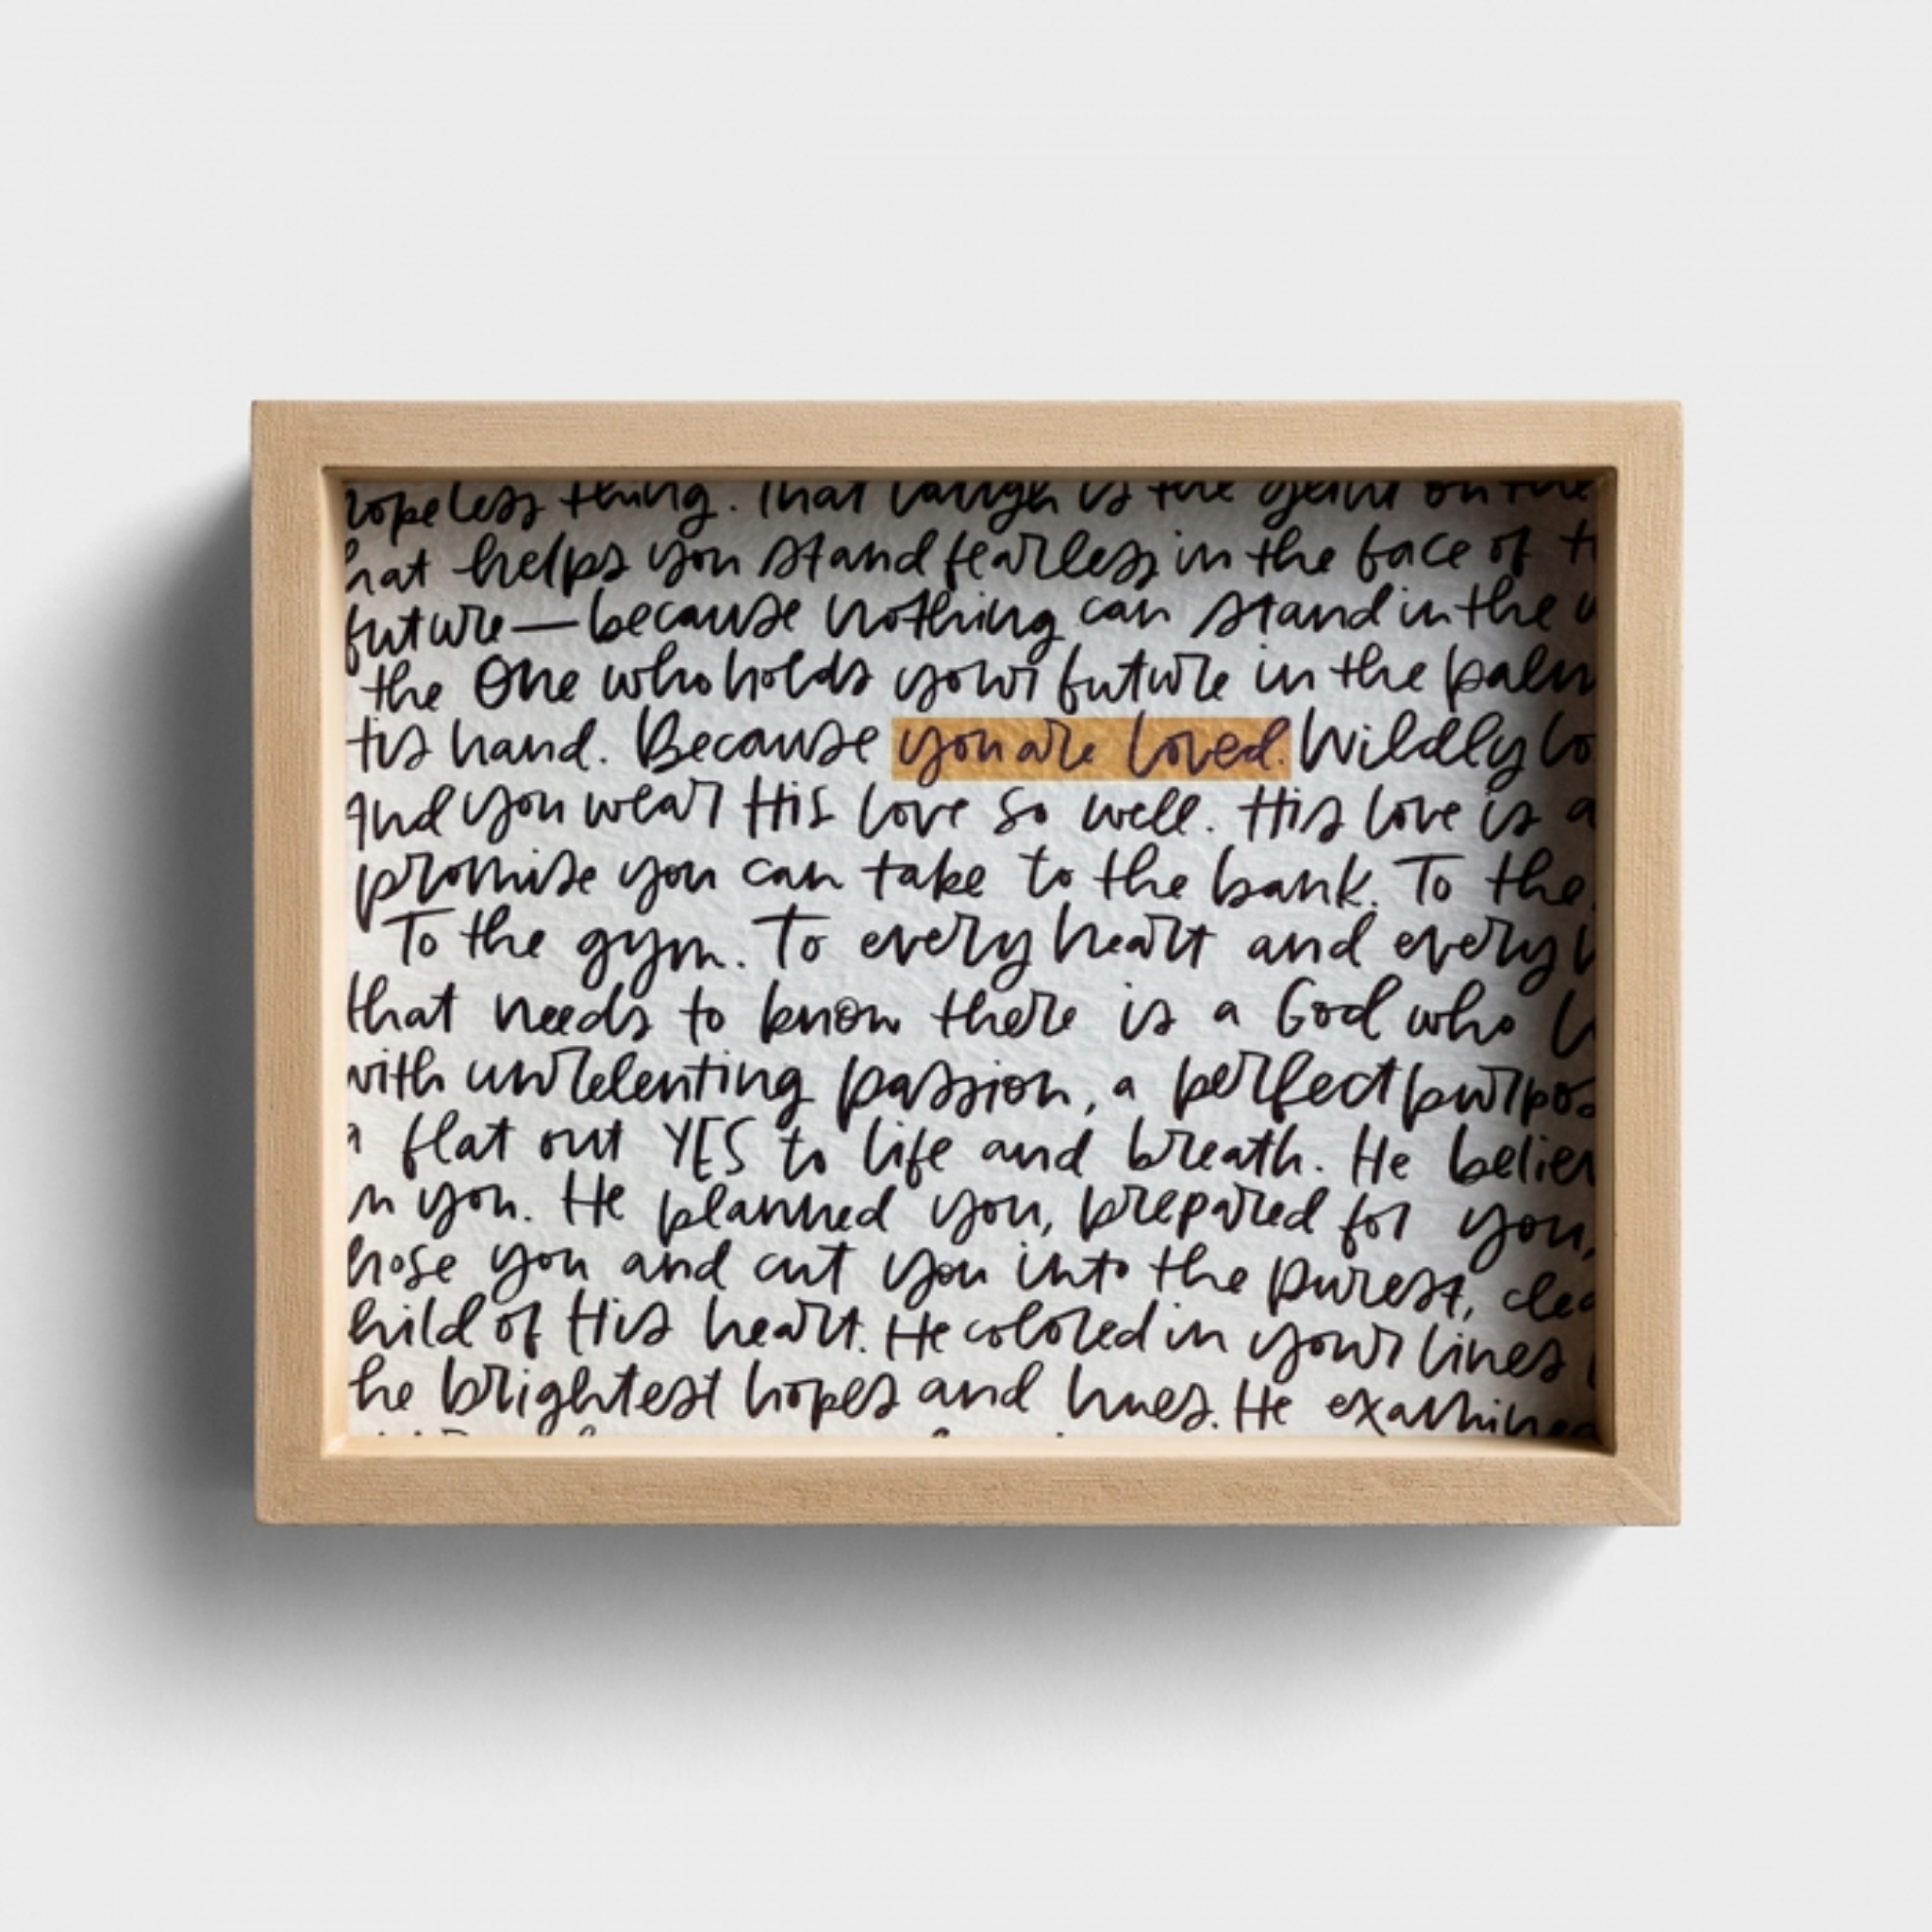 hopeless thing. That laugh is the glint on the
hat helps you stand fearless in the face of t
future—because nothing can stand in the w
the One who holds your future in the palm
His hand. Because you are loved. Wildly lo
And you wear His love so well. His love is a
promise you can take to the bank. To the
To the gym. To every heart and every h
that needs to know there is a God who l
with unrelenting passion, a perfect purpos
a flat out YES to life and breath. He believ
in you. He planned you, prepared for you,
hose you and cut you into the purest, clea
hild of His heart. He colored in your lines
he brightest hopes and hues. He examined